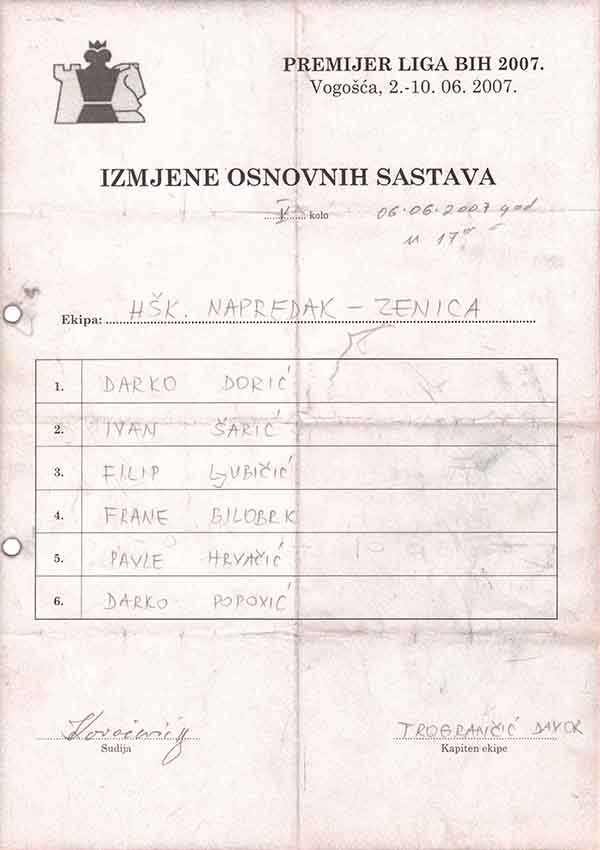 PREMIJER LIGA BIH 2007.
Vogošća, 2.-10. 06. 2007.
IZMJENE OSNOVNIH SASTAVA
V kolo 06.06.2007 god
u 17⁰⁰
Ekipa: HŠK. NAPREDAK - ZENICA
1. DARKO DORIĆ
2. IVAN ŠARIĆ
3. FILIP LJUBIČIĆ
4. FRANE BILOBRK
5. PAVLE HRVAČIĆ
6. DARKO POPOVIĆ
TROGRANČIĆ DAVOR
Sudija Kapiten ekipe